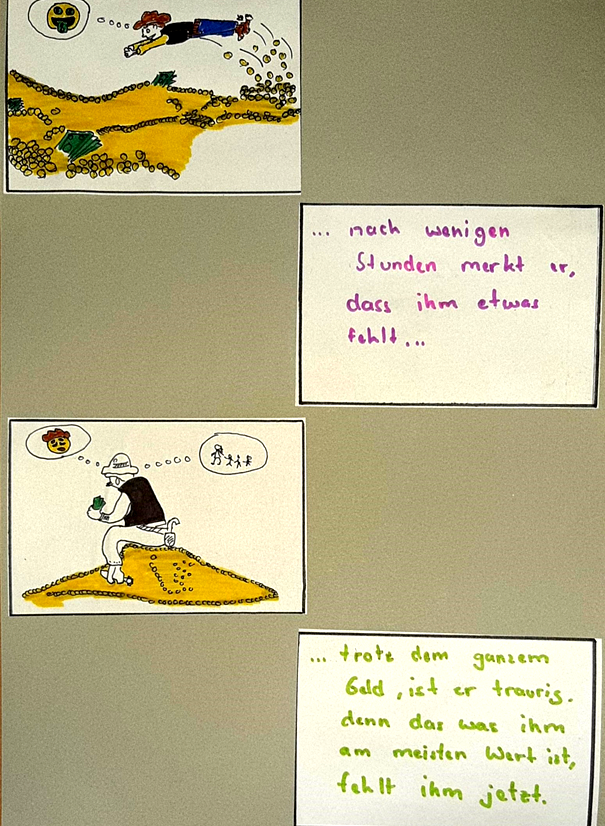 ... nach wenigen
Stunden merkt er,
dass ihm etwas
fehlt...
... trotz dem ganzem
Geld, ist er traurig.
denn das was ihm
am meisten Wert ist,
fehlt ihm jetzt.